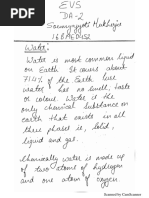 EVS
DA-2
Soumyajyoti Mukherjee
16BME0152
Water:
Water is most common liquid
on Earth. It covers about
71.4% of the Earth. Pure
water has no smell, taste
or colour. Water is the
only chemical substance on
earth that exists in all
three phases ie, solid,
liquid and gas.
Chemically water is made up
of two atoms of hydrogen
and one atom of oxygen